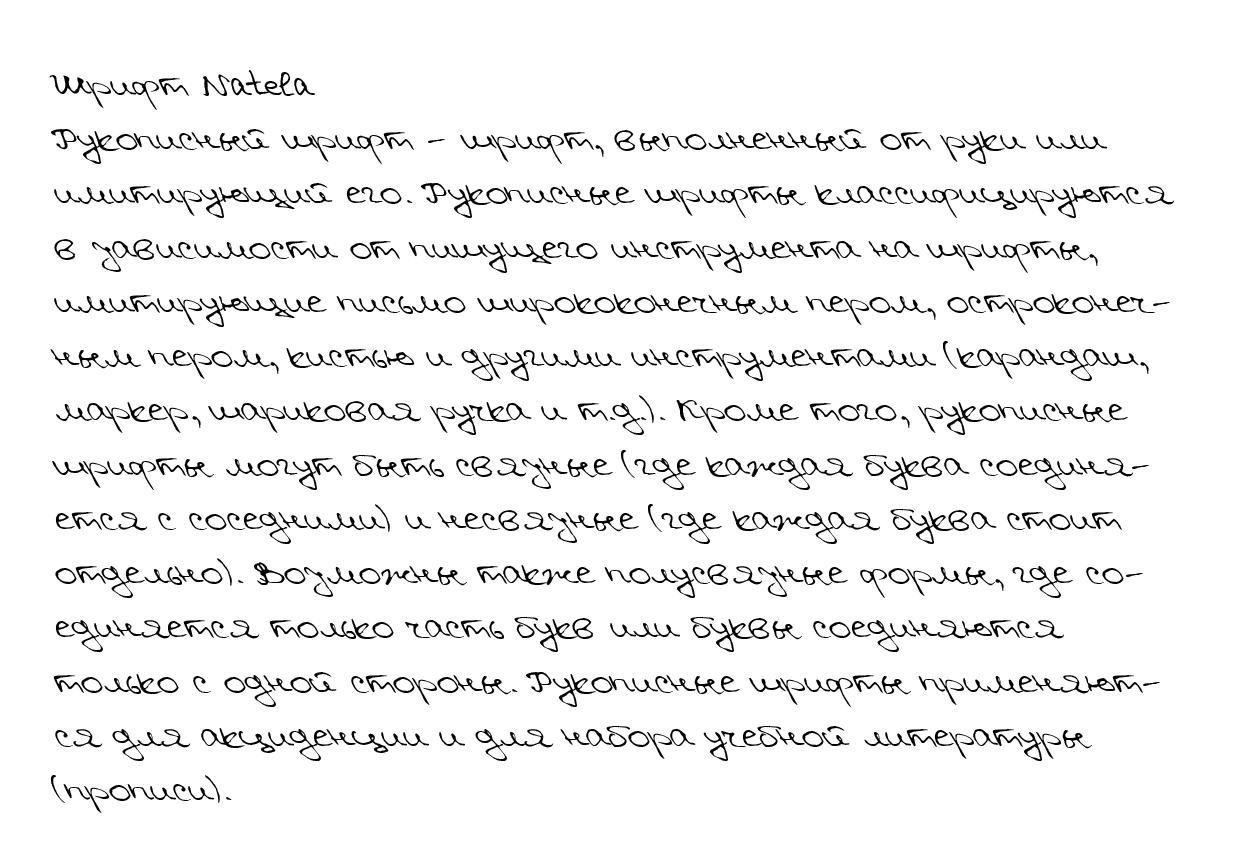 Шрифт Natela
Рукописный шрифт – шрифт, выполненный от руки или
имитирующий его. Рукописные шрифты классифицируются
в зависимости от пишущего инструмента на шрифты,
имитирующие письмо ширококонечным пером, остроконеч-
ным пером, кистью и другими инструментами (карандаш,
маркер, шариковая ручка и т.д.). Кроме того, рукописные
шрифты могут быть связные (где каждая буква соединя-
ется с соседними) и несвязные (где каждая буква стоит
отдельно). Возможны также полусвязные формы, где со-
единяется только часть букв или буквы соединяются
только с одной стороны. Рукописные шрифты применяют-
ся для акциденции и для набора учебной литературы
(прописи).